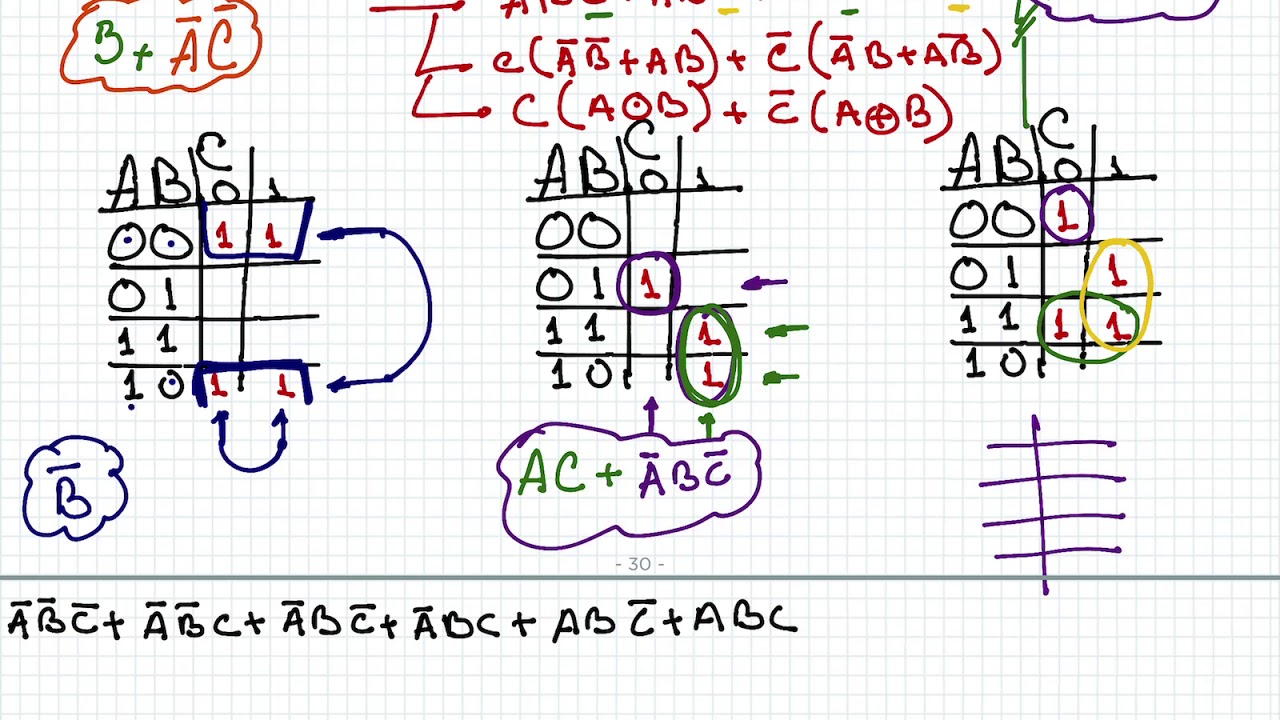 B + A̅C̅
C(A̅B̅ + AB) + C̅(A̅B + AB̅)
C(A⊙B) + C̅(A⊕B)
C
AB 0 1
00 1 1
01
11
10 1 1
B̅
C
AB 0 1
00
01 1
11 1
10 1
AC + A̅BC̅
C
AB 0 1
00 1
01 1
11 1 1
10
- 30 -
A̅B̅C̅ + A̅B̅C + A̅BC̅ + A̅BC + ABC̅ + ABC